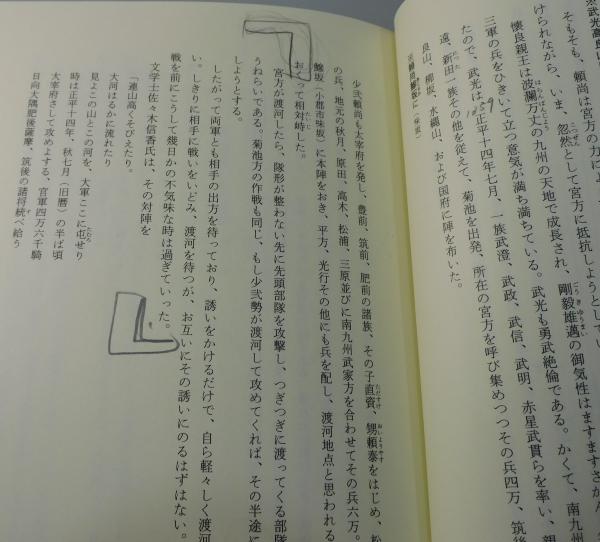 そもそも、頼尚は宮方の力によ
けられながら、いま、忽然として宮方に抵抗しようとしてい
懐良親王は波瀾万丈の九州の天地で成長され、剛毅雄邁の御気性はますますさかん
三軍の兵をひきいて立つ意気が満ち満ちている。武光も勇武絶倫である。かくて、南九州
たので、武光は正平十四年七月、一族武澄、武政、武信、武明、赤星武貫らを率い、親
1359
遠、新田一族その他を従えて、菊池を出発、所在の宮方を呼び集めつつその兵四万、筑後
良山、柳坂、水縄山、および国府に陣を布いた。
少弐頼尚も太宰府を発し、豊前、筑前、肥前の諸族、その子直資、甥頼泰をはじめ、松
の兵、地元の秋月、原田、高木、松浦、三原並びに南九州武家方を合わせてその兵六万。
鰺坂（小郡市味坂）に本陣をおき、平方、光行その他にも兵を配し、渡河地点と思われる
おくって相対峙した。
宮方が渡河したら、隊形が整わない先に先頭部隊を攻撃し、つぎつぎに渡ってくる部隊
うねらいである。菊池方の作戦も同じ、もし少弐勢が渡河して攻めてくれば、その半途に
しようとする。
したがって両軍とも相手の出方を待っており、誘いをかけるだけで、自ら軽々しく渡河
い。しきりに相手に戦いをいどみ、渡河を待つが、お互いにその誘いにのるはずはない。
戦を前にこうして幾日かの不気味な時は過ぎていった。
文学士佐々木信香氏は、その対陣を
「連山高くそびえたり。
大河はるかに流れたり
見よこの山とこの河を、大軍ここに屯せり
時は正平十四年、秋七月（旧暦）の半ば頃
太宰府さして攻めよする、官軍四万六千騎
日向大隅肥後薩摩、筑後の諸将統べ給う